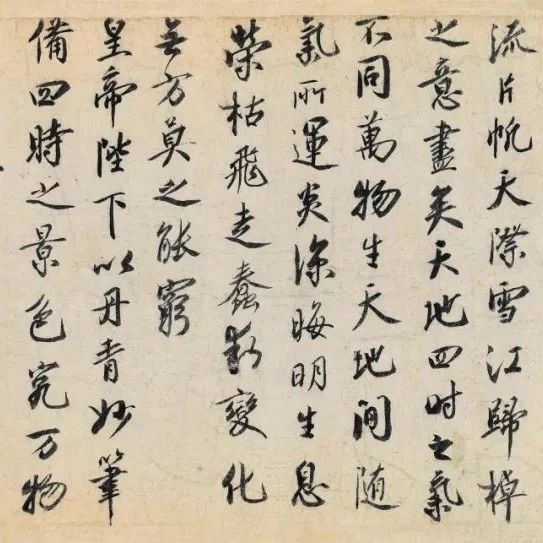 流片帆天際雪江歸棹
之意盡矣天地四时之氣
不同萬物生天地間随
氣所運炎涼晦明生息
榮枯飛走蠢動變化
無方莫之能窮
皇帝陛下以丹青妙筆
備四時之景色究万物